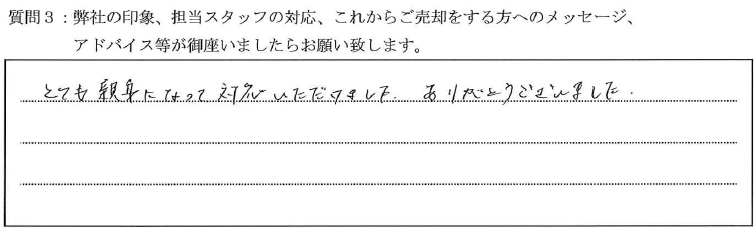 質問3：弊社の印象、担当スタッフの対応、これからご売却をする方へのメッセージ、
アドバイス等が御座いましたらお願い致します。
とても親身になって対応いただけました。ありがとうございました。